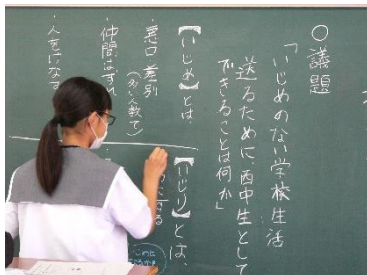 ○議題
「いじめのない学校生活
送るために、西中生として
できることは何か」
【いじめ】とは、
・悪口 差別
(多い人数で)
・仲間はずれ
・人をに
【いじり】とは、
する